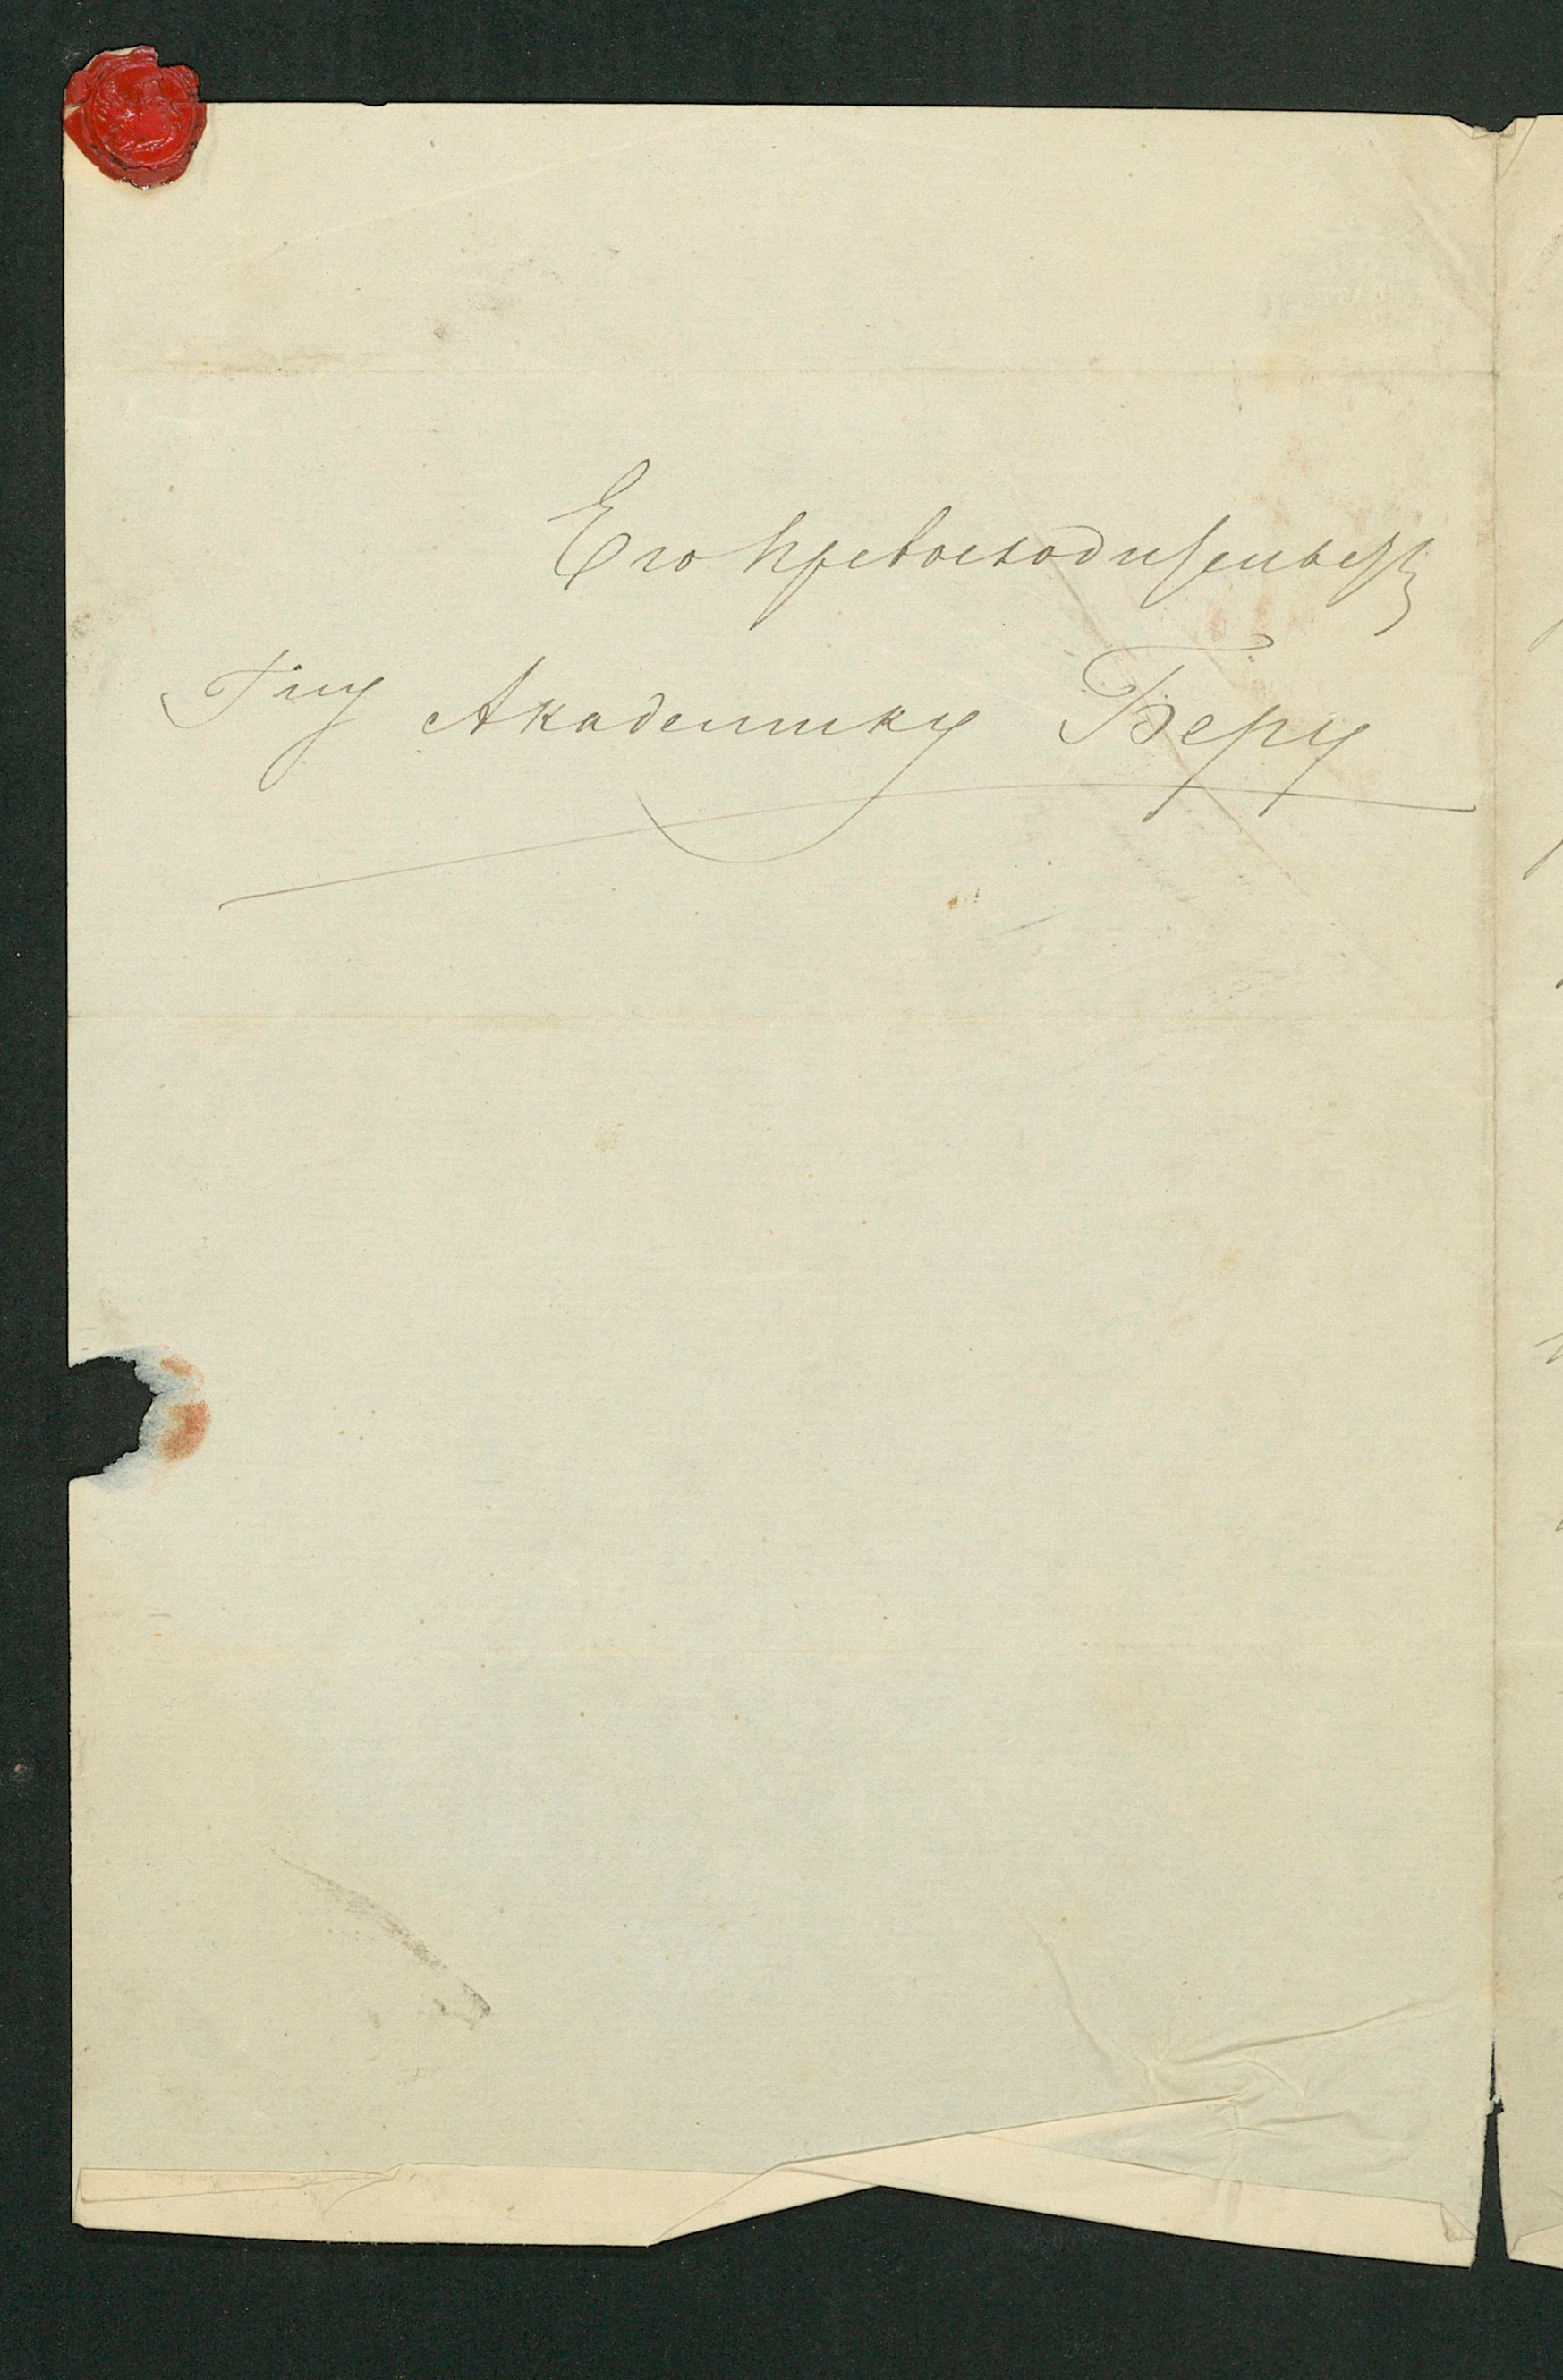 Его Превосходительству
Гну Академику Беру